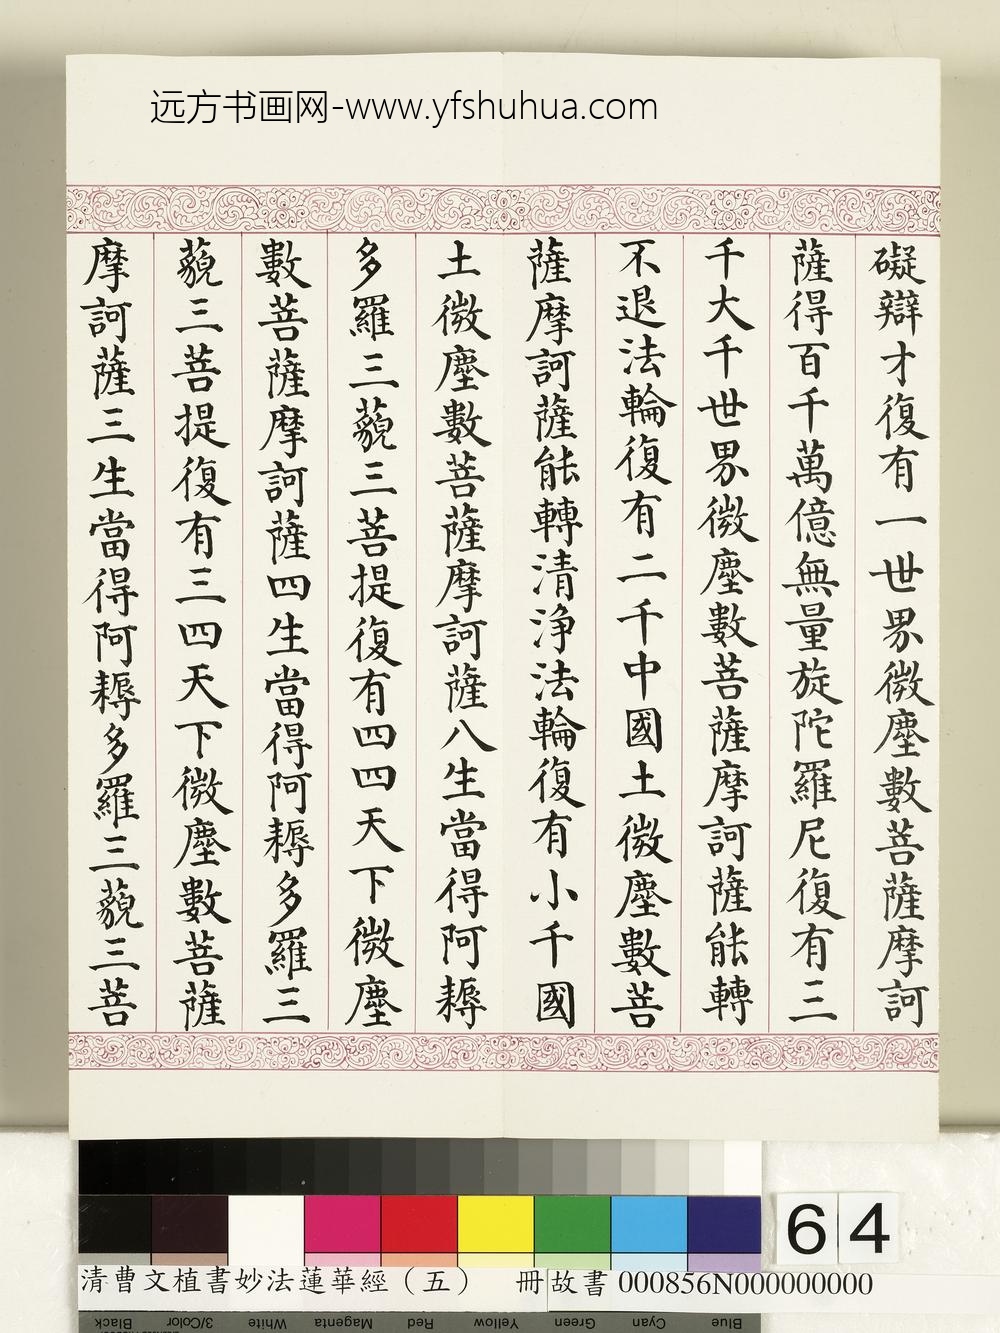 远方书画网-www.yfshuhua.com
礙辯才復有一世界微塵數菩薩摩訶
薩得百千萬億無量旋陀羅尼復有三
千大千世界微塵數菩薩摩訶薩能轉
不退法輪復有二千中國土微塵數菩
薩摩訶薩能轉清淨法輪復有小千國
土微塵數菩薩摩訶薩八生當得阿耨
多羅三藐三菩提復有四四天下微塵
數菩薩摩訶薩四生當得阿耨多羅三
藐三菩提復有三四天下微塵數菩薩
摩訶薩三生當得阿耨多羅三藐三菩
64
清曹文植書妙法蓮華經（五） 冊 故書 000856N000000000
Black 3/Color White Magenta Red Yellow Green Cyan Blue